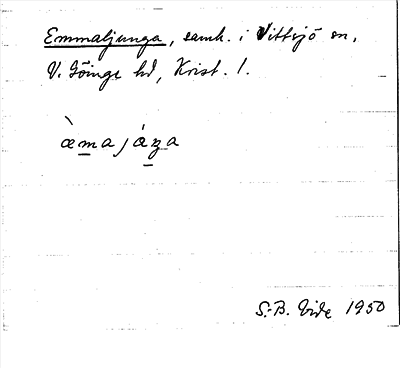 Emmaljunga, samh. i Vittsjö sn,
V. Göinge hd, Krist. l.
S.-B. Vide 1950